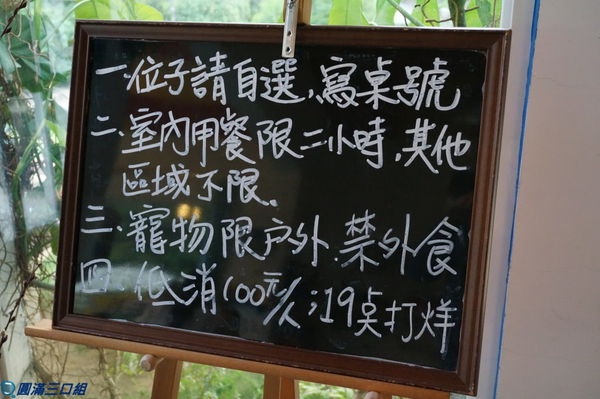 一、位子請自選，寫桌號
二、室內用餐限二小時，其他
區域不限。
三、寵物限戶外．禁外食
四、低消100元/人；19點打烊
圓滿三口組